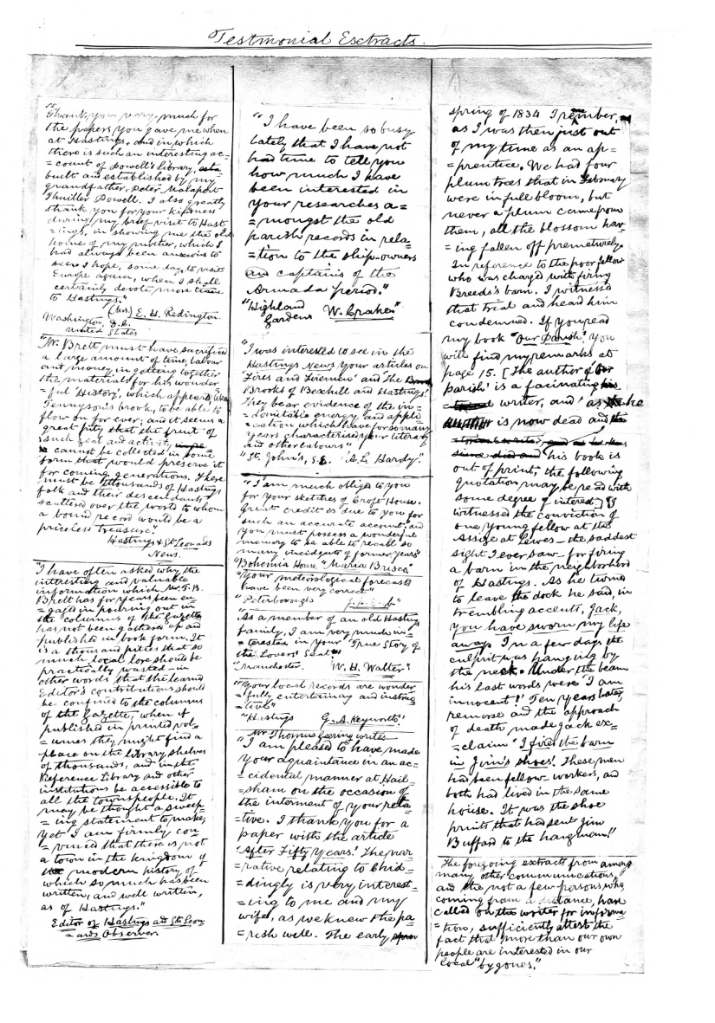 Testmonial Esctracts.
"Thank you very much for
the papers you gave me when
at Hastings, and in which
there is such an interesting ac=
=count of Dowell's library,
built and established by my
grandfather, Peter Malapert
Thriller Powell. I also greatly
thank you for your kindness
during my brief visit to Hast
=ings, in showing me the old
home of my mother, which I
had always been anxious to
see. I hope, some day, to visit
Europe again, when I shall
certainly devote more time
to Hastings."
(Mrs) E. H. Redington
Washington, D.C.
United States
"Mr. Brett must have sacrificed
a large amount of time, labour
and money, in getting together
the materials for his wonder
=ful History, which appears, like
Tennyson's brook, to be able to
flow on for ever; and it seems a
great pity that the fruit of
such zeal and activity
cannot be collected in some
form that would preserve it
for coming generations. There
must be thousands of Hastings
folk and their descendants
scattered over the world to whom
a bound record would be a
priceless treasure."
Hastings & St. Leonards
News.
"I have often asked why the
interesting and valuable
information which Mr. T. B.
Brett has for years been en
=gaged in pouring out in
the columns of the Gazette
has not been gathered up and
published in book form. It
is a thousand pities that so
much local lore should be
practically wasted – in
other words that the learned
Editor's contributions should
be confined to the columns
of the Gazette, when if
published in printed vol=
=umes they might find a
place on the library shelves
of thousands, and in the
Reference Library and other
institutions be accessible to
all the townspeople. It
may be thought a sweep
=ing statement to make,
yet I am firmly con
=vinced that there is not
a town in the kingdom of
modern history of
which so much has been
written, and well written,
as of Hastings."
Editor of Hastings and St. Leon
=ards Observer
"I have been so busy
lately that I have not
had time to tell you
how much I have
been interested in
your researches a=
=mongst the old
parish records in rela=
=tion to the ship-owners
and captains of the
Armada period."
"Highland
Gardens W. Crake"
"I was interested to see in the
Hastings News your articles on
'Fires and Firemen' and The
Brooks of Bexhill and Hastings.
They bear evidence of the in
=domitable energy and appli
=cation which have for so many
years characterised your literary
and other labours"
"St. John's, S.E. A. L. Hardy"
"I am much obliged to you
for your sketches of Croft House.
Great credit is due to you for
such an accurate account, and
you must possess a wonderful
memory to be able to recall so
many incidents of former years"
"Bohemia House" "Maria Brisco"
"Your meteorological forecasts
have been very correct"
"Peterborough
"As a member of an old Hastings
Family, I am very much in=
=terested in your 'True Story of
the Lovers' Seat'"
"Manchester. W. H. Walter"
"Your local records are wonder
=fully entertaining and instruc
=tive"
"Hastings G. A. Keyworth"
Mr. Thomas Geering writes
"I am pleased to have made
your aquaintance in an ac=
=cidental manner at Hail
=sham on the occasion of
the interment of your rela=
=tive. I thank you for a
paper with the article
'After Fifty Years'. The nar=
=rative relating to Chid=
=dingly is very interest=
=ing to me and my
wife, as we knew the pa=
=rish well. The early
spring of 1834 I remember,
as I was then just out
of my time as an ap=
=prentice. We had four
plum trees that in February
were in full bloom, but
never a plum came from
them, all the blossom hav=
=ing fallen off prematurely.
In reference to the poor fellow
who was charged with firing
Breeds's barn. I witnessed
that trial and heard him
condemned. If you read
my book "Our Parish" you
will find my remarks at
page 15. [The author of 'Our
Parish' is a facinating
writer, and as he
is now dead and
his book is
out of print, the following
quotation may be read with
some degree of interest.] "I
witnessed the conviction of
one young fellow at the
Assize at Lewes – the saddest
sight I ever saw – for firing
a barn in the neighborhood
of Hastings. As he turned
to leave the dock he said, in
trembling accents, Jack,
you have sworn my life
away. In a few days the
culprit was hanging by
the neck. Under the beam
his last words were 'I am
innocent!' Ten years later,
remorse and the approach
of death made Jack ex=
=claim 'I fired the barn
in Jim's shoes'. These men
had been fellow workers, and
both had lived in the same
house. It was the shoe
prints that had sent Jim
Bufford to the hangman!"
The foregoing extracts from among
many other communications,
and the not a few persons who,
coming from a distance, have
called on the writer for informa
=tion, sufficiently attest the
fact that more than our own
people are interested in our
local "bygones."